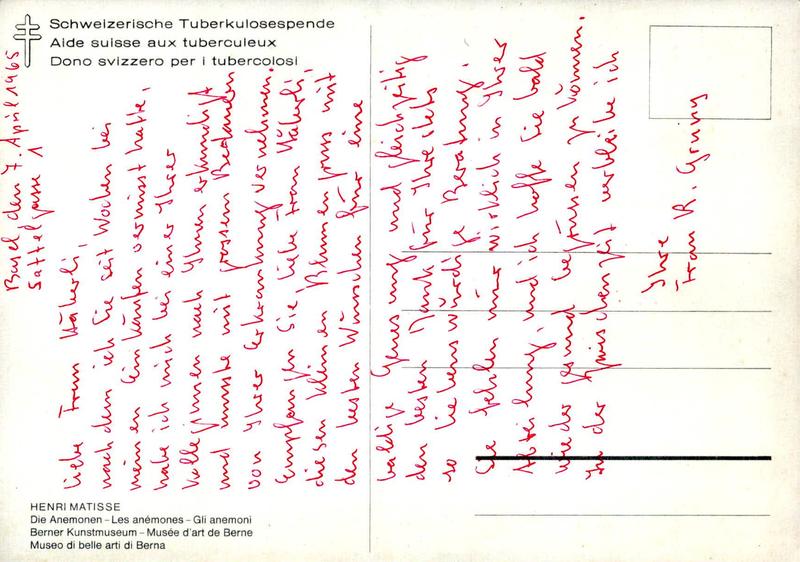 Schweizerische Tuberkulosespende
Aide suisse aux tuberculeux
Dono svizzero per i tubercolosi
Basel den 7. April 1965
Sattelgasse 1
Liebe Frau Häberli,
nach dem ich Sie seit Wochen bei
meinen Einkäufen vermisst hatte,
habe ich mich bei einer Ihrer
Kolleginnen nach Ihnen erkundigt
und musste mit grossem Bedauern
von Ihrer Erkrankung vernehmen.
Empfangen Sie liebe Frau Häberli,
diesen kleinen Blumengruss mit
den besten Wünschen für eine
baldige Genesung und gleichzeitig
den besten Dank für Ihre stets
so liebenswürdige Beratung.
Sie fehlen mir wirklich in Ihrer
Abteilung, und ich hoffe Sie bald
wieder gesund begrüssen zu können.
In der Zwischenzeit verbleibe ich
Ihre
Frau R. Gruny
HENRI MATISSE
Die Anemonen – Les anémones – Gli anemoni
Berner Kunstmuseum – Musée d'art de Berne
Museo di belle arti di Berna